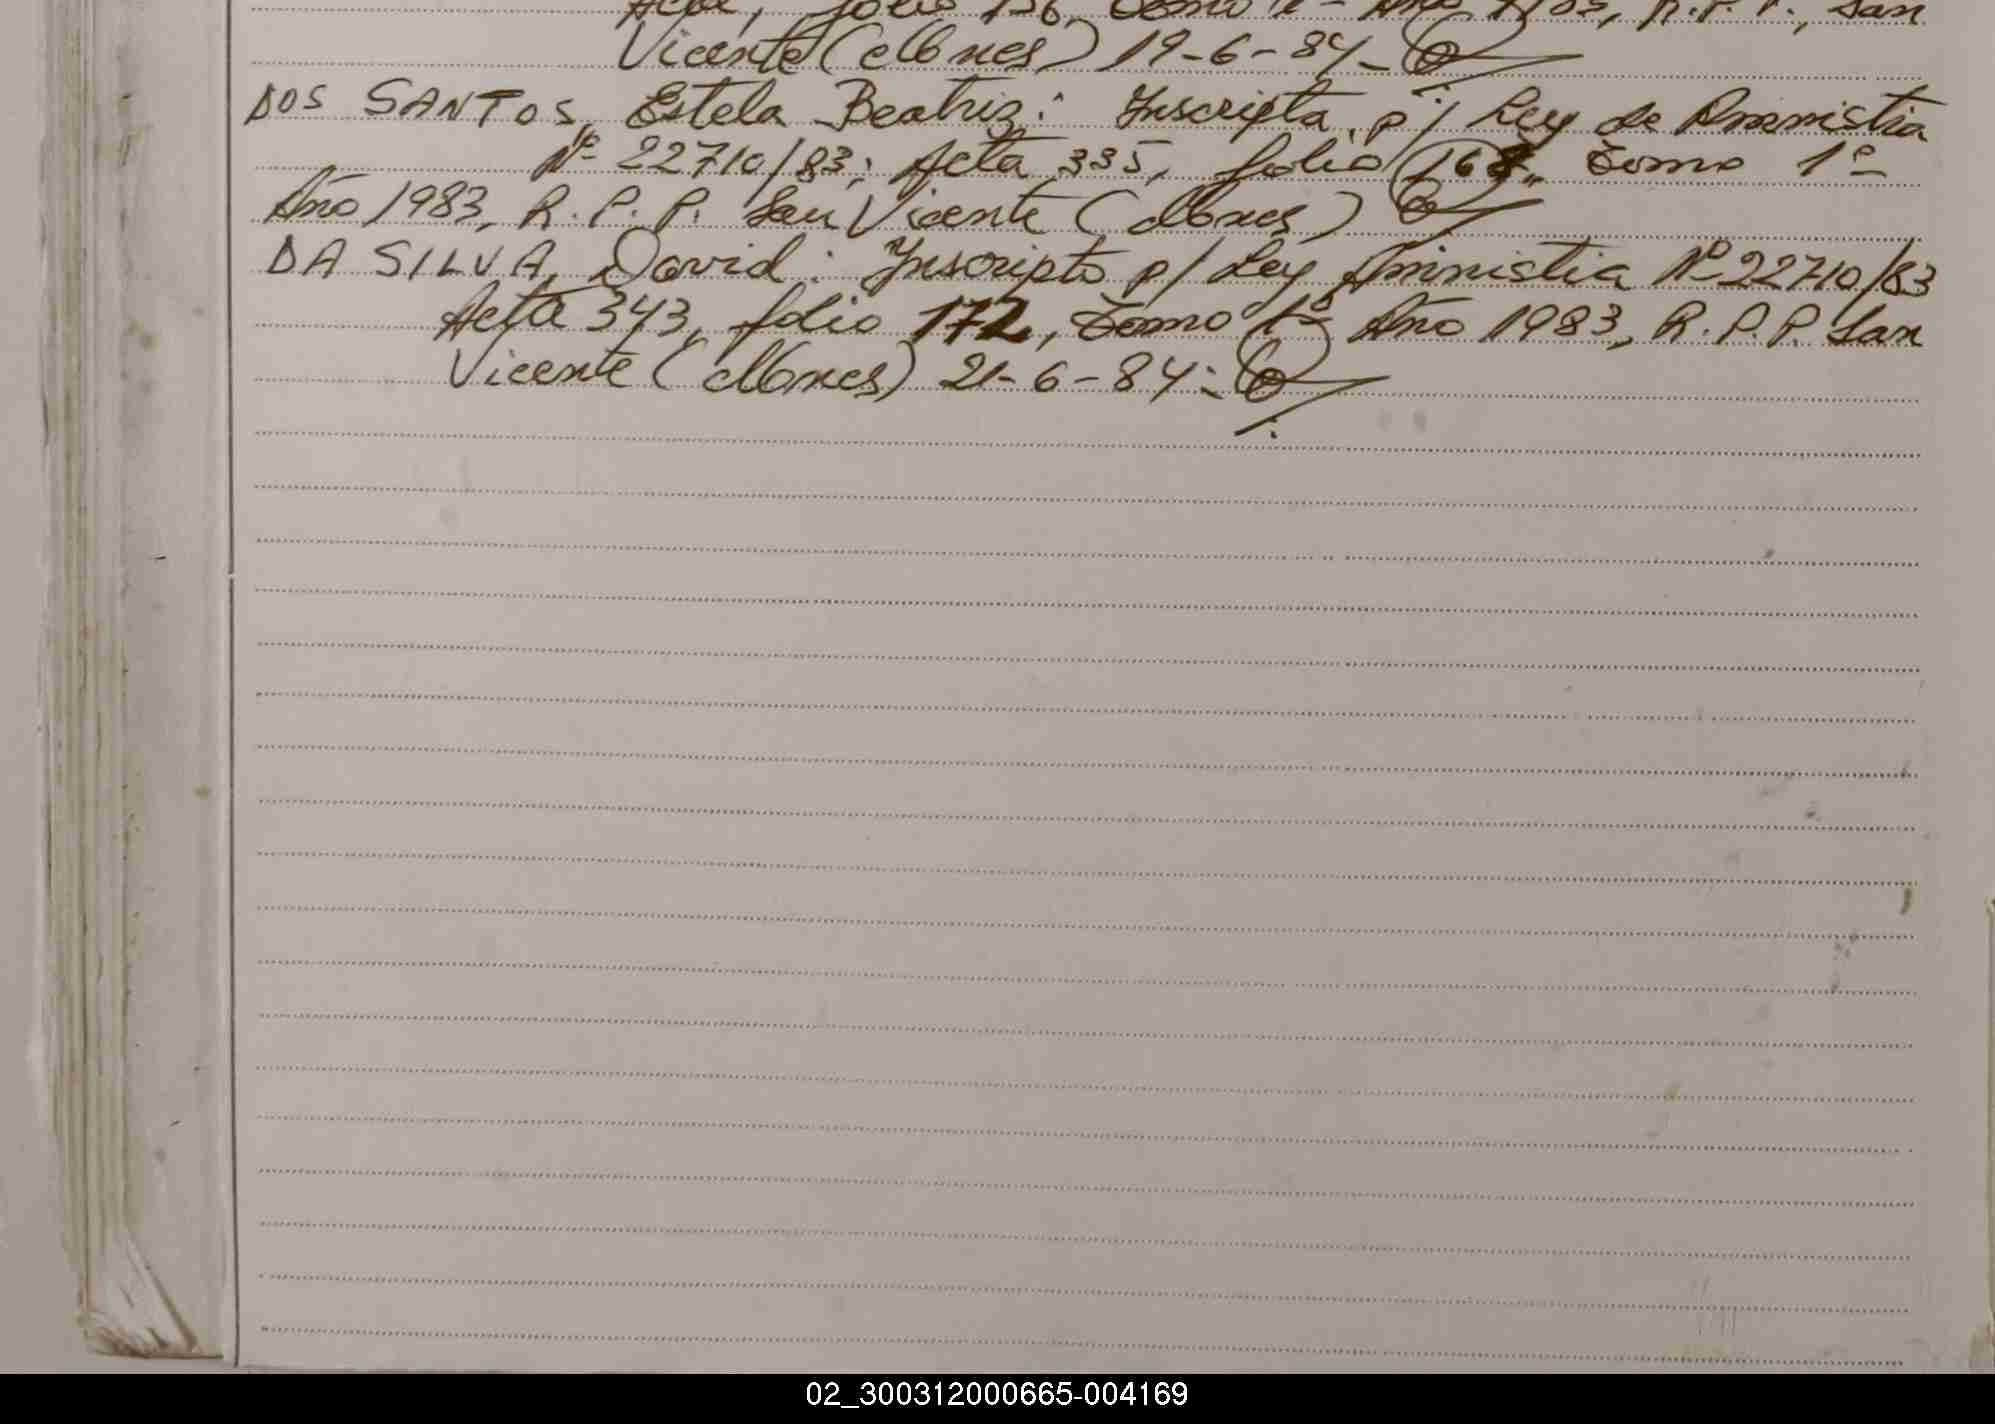 folio 156 Tomo 1º - Año 1983, R.P.P., San
Vicente (Mnes) 19-6-84-
DOS SANTOS, Estela Beatriz: Inscripta p/ Ley de Amnistia
Nº 22710/83; Acta 335, folio 168, Tomo 1º-
Año 1983, R.P.P. San Vicente (Mnes)
DA SILVA, David: Inscripto p/ Ley Amnistia Nº 22710/83
Acta 343, folio 172, Tomo 1º Año 1983, R.P.P. San
Vicente (Mnes) 21-6-84-
02_300312000665-004169